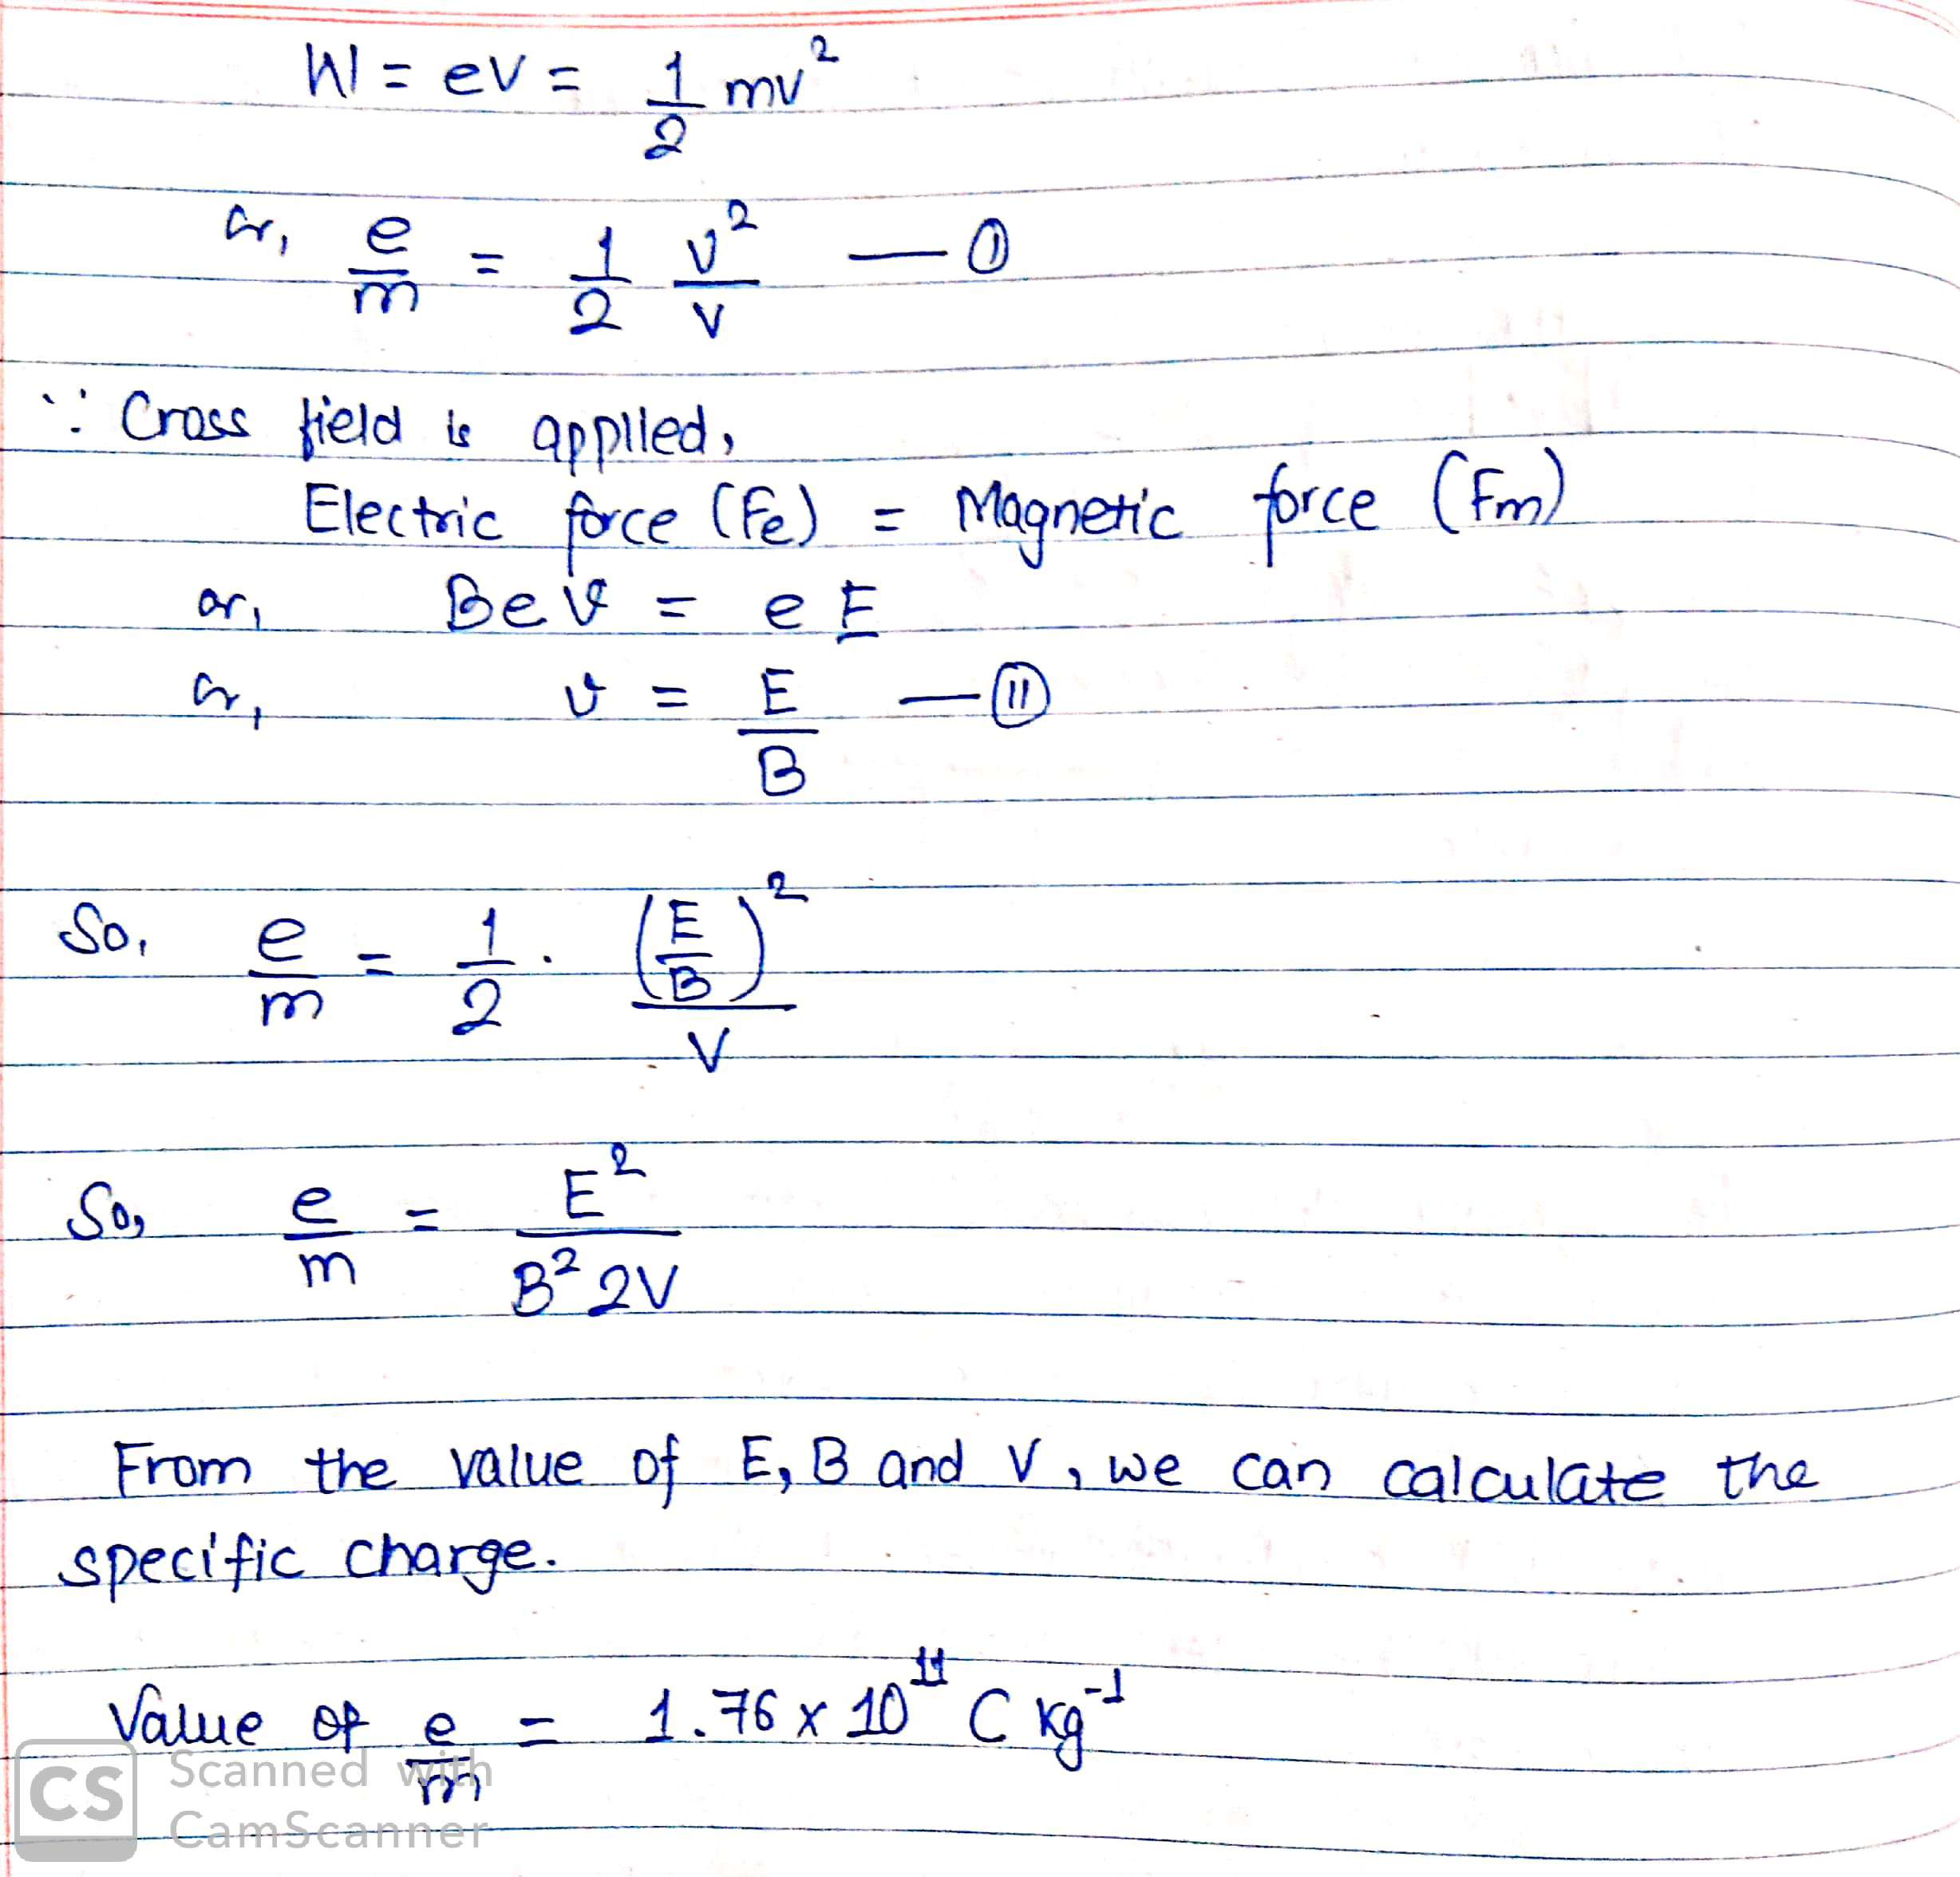 W = eV = 1/2 mv²
or, e/m = 1/2 v²/V — ①
∵ Cross field is applied,
Electric force (Fe) = Magnetic force (Fm)
or, Bev = eE
or, v = E/B — ⑪
So, e/m = 1/2 · (E/B)²/V
So, e/m = E²/B² 2V
From the value of E, B and V, we can calculate the
specific charge.
Value of e/m = 1.76 x 10¹¹ C kg⁻¹
CS Scanned with
CamScanner